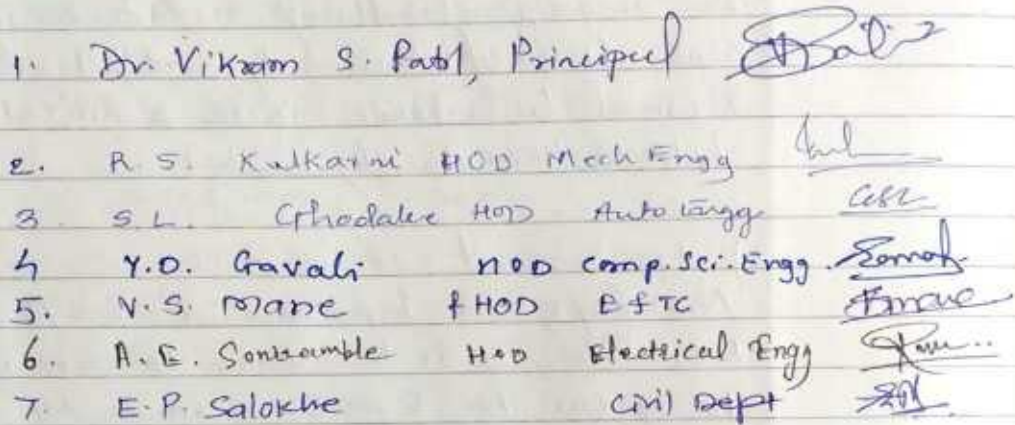 1. Dr. Vikram S. Patil, Principal
2. R. S. Kulkarni HOD Mech Engg
3 S.L. Ghodake HOD Auto Engg
4 Y.D. Gavali HOD Comp. Sci. Engg.
5. V.S. Mane HOD E & TC
6. A.E. Sontramble HOD Electrical Engg
7. E.P. Salokhe Civil Dept